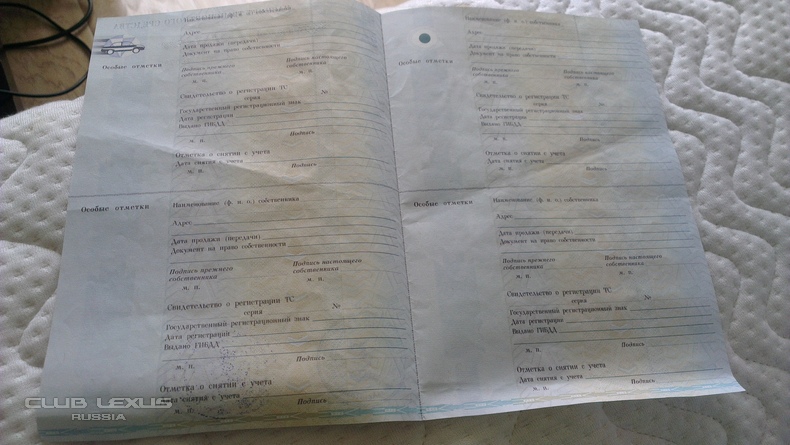 Наименование (ф. и. о.) собственника
Адрес
Дата продажи (передачи)
Документ на право собственности
Особые отметки
Подпись прежнего собственника
Подпись настоящего собственника
м. п.
м. п.
Свидетельство о регистрации ТС
серия №
Государственный регистрационный знак
Дата регистрации
Выдано ГИБДД
м. п. Подпись
Отметка о снятии с учета
Дата снятия с учета
м. п. Подпись
Особые отметки
Наименование (ф. и. о.) собственника
Адрес
Дата продажи (передачи)
Документ на право собственности
Подпись прежнего собственника
Подпись настоящего собственника
м. п.
м. п.
Свидетельство о регистрации ТС
серия №
Государственный регистрационный знак
Дата регистрации
Выдано ГИБДД
м. п. Подпись
Отметка о снятии с учета
Дата снятия с учета
м. п. Подпись
Наименование (ф. и. о.) собственника
Адрес
Дата продажи (передачи)
Документ на право собственности
Особые отметки
Подпись прежнего собственника
Подпись настоящего собственника
м. п.
м. п.
Свидетельство о регистрации ТС
серия №
Государственный регистрационный знак
Дата регистрации
Выдано ГИБДД
м. п. Подпись
Отметка о снятии с учета
Дата снятия с учета
м. п. Подпись
Особые отметки
Наименование (ф. и. о.) собственника
Адрес
Дата продажи (передачи)
Документ на право собственности
Подпись прежнего собственника
Подпись настоящего собственника
м. п.
м. п.
Свидетельство о регистрации ТС
серия №
Государственный регистрационный знак
Дата регистрации
Выдано ГИБДД
м. п. Подпись
Отметка о снятии с учета
Дата снятия с учета
м. п. Подпись
CLUB LEXUS
RUSSIA